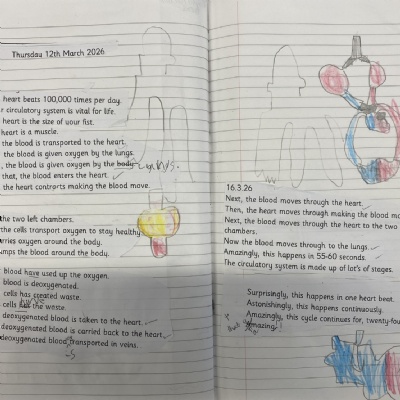 Thursday 12th March 2026
heart beats 100,000 times per day.
circulatory system is vital for life.
heart is the size of your fist.
heart is a muscle.
the blood is transported to the heart.
the blood is given oxygen by the lungs.
, the blood is given oxygen by the body lungs.
that, the blood enters the heart.
the heart controrts making the blood move.
the two left chambers.
the cells transport oxygen to stay healthy
arries oxygen around the body.
umps the blood around the body.
blood have used up the oxygen.
blood is deoxygenated.
cells has created waste.
cells the waste.
deoxygenated blood is taken to the heart.
deoxygenated blood is carried back to the heart.
deoxygenated blood transported in veins.
is
16.3.26
Next, the blood moves through the heart.
Then, the heart moves through making the blood mo
Next, the blood moves through the heart to the two
chambers.
Now the blood moves through to the lungs.
Amazingly, this happens in 55-60 seconds.
The circulatory system is made up of lot's of stages.
Surprisingly, this happens in one heart beat.
Astonishingly, this happens continuously.
Amazingly, this cycle continues for, twenty-fou
Amazing!